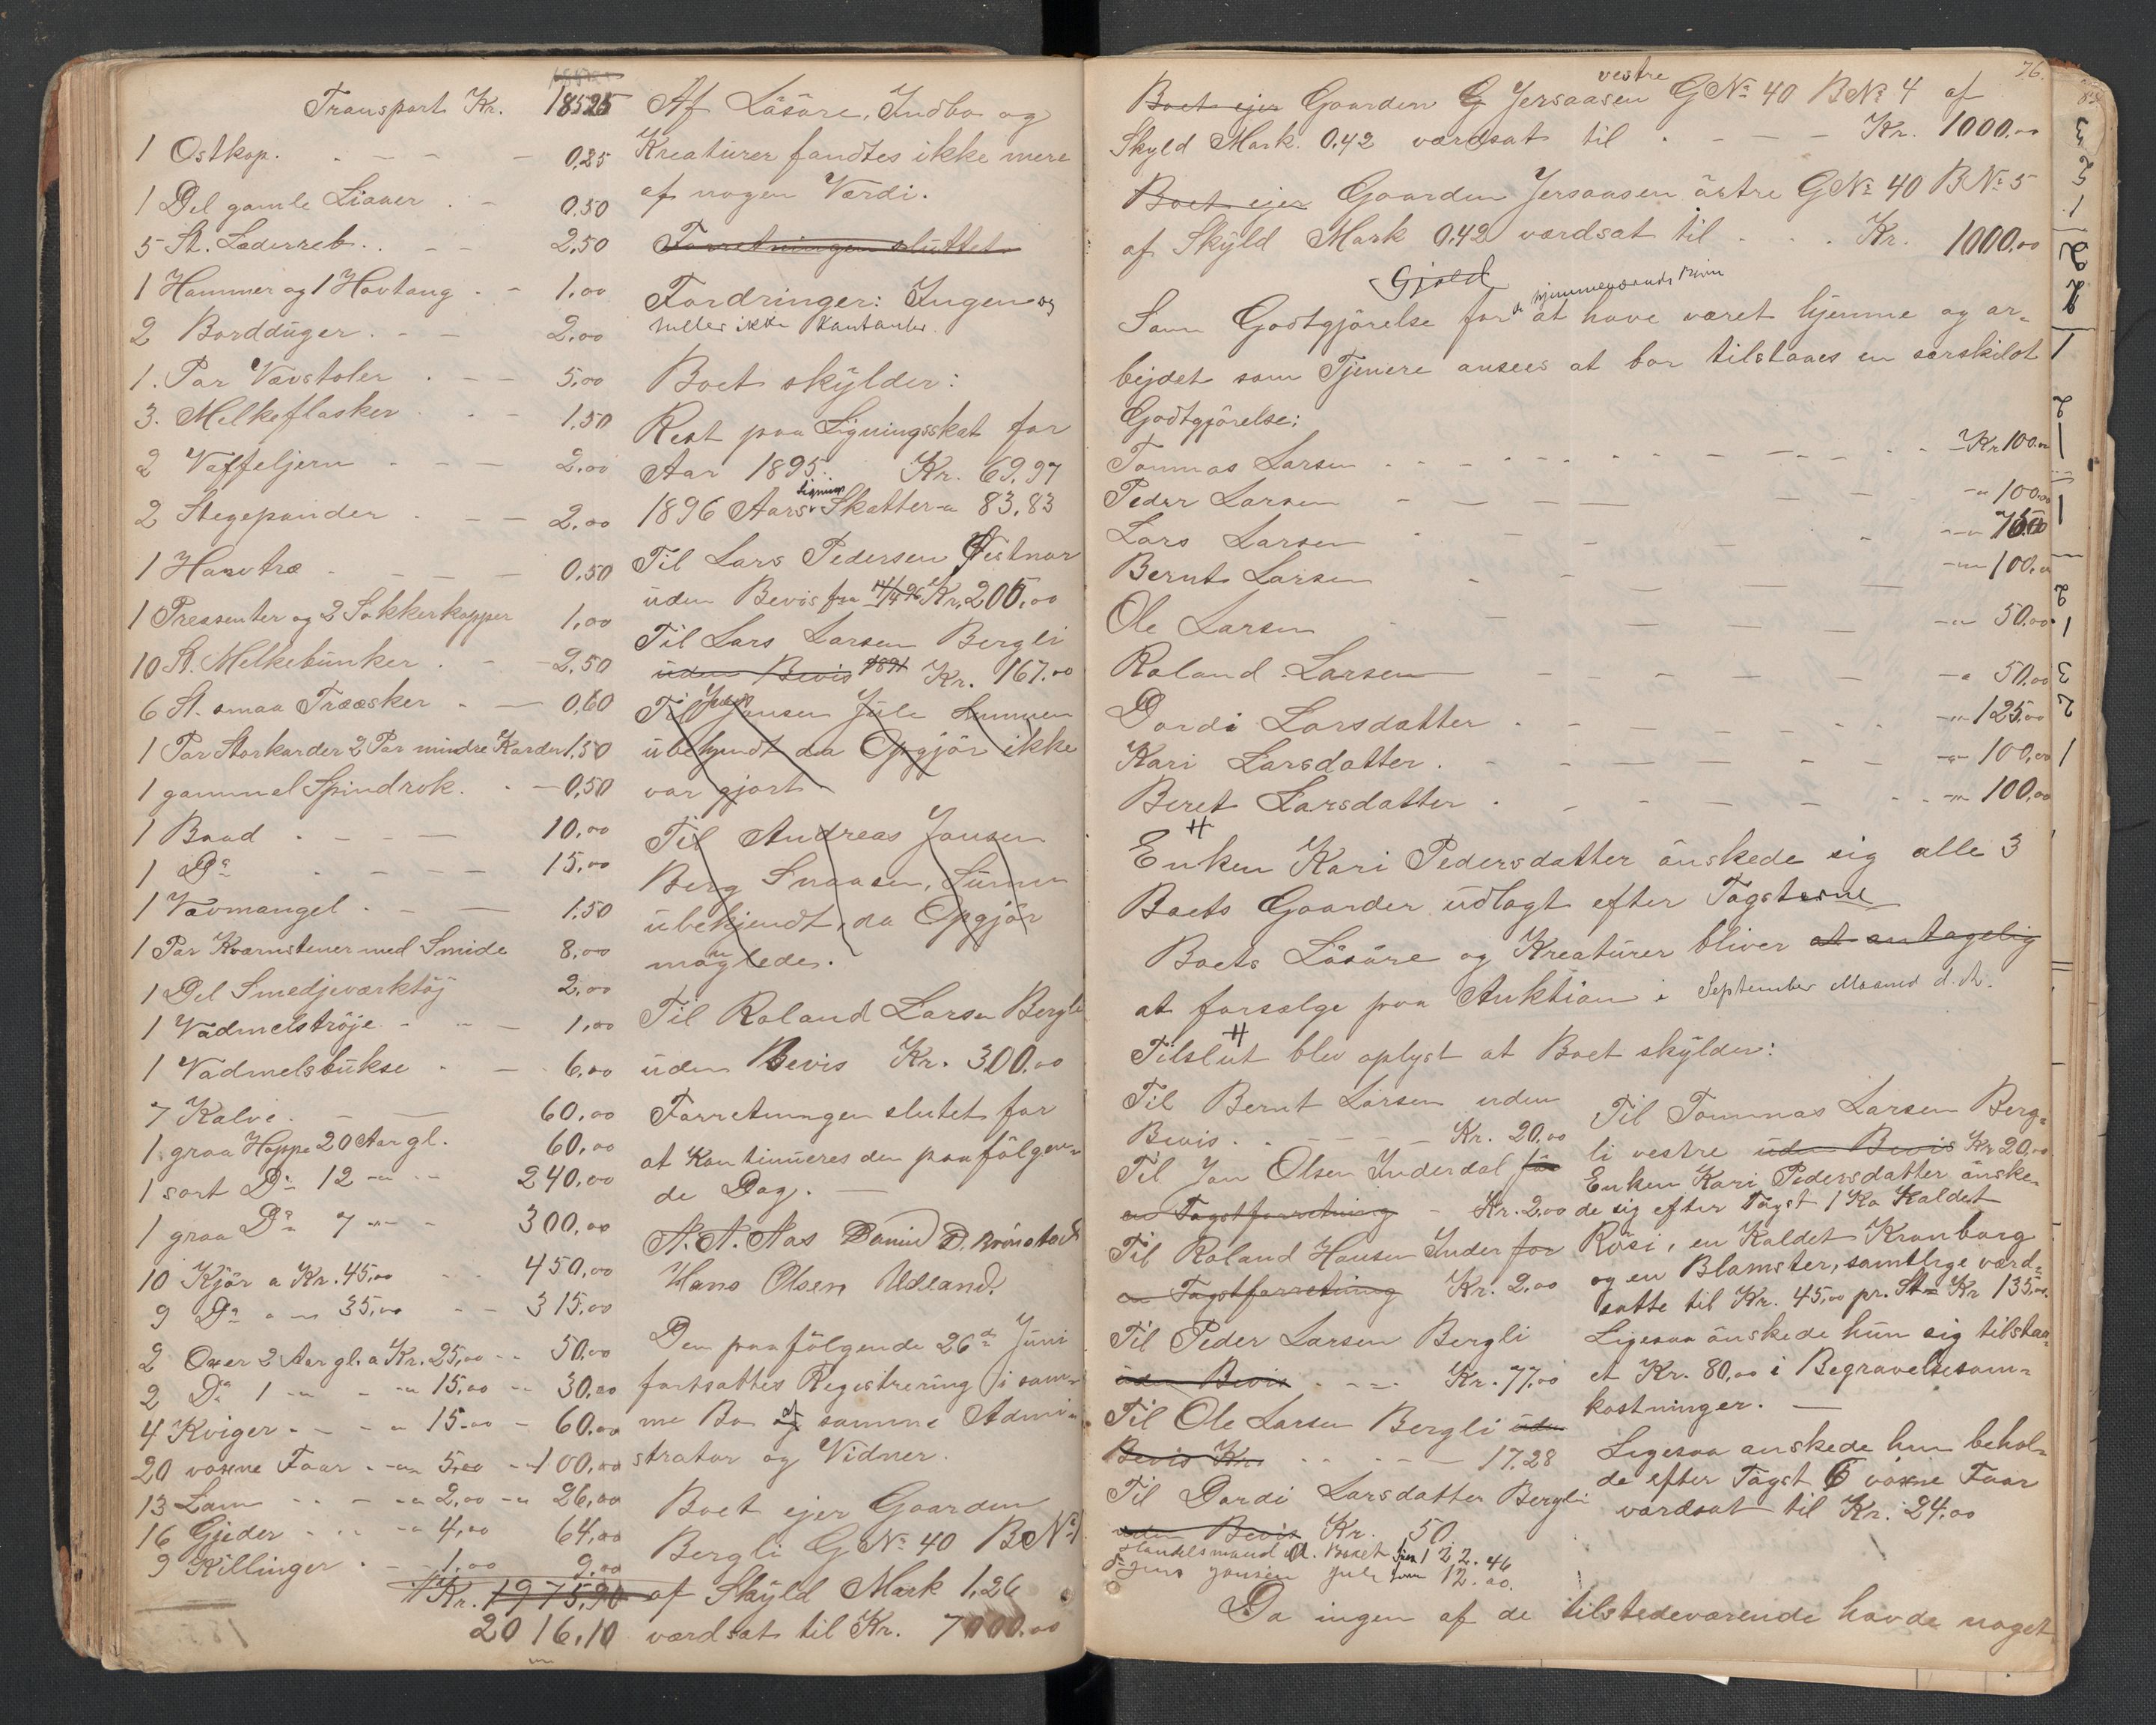 Transport Kr. 185.25
1 Ostkop. 0,25
1 Del gamle Liaaer 0,50
5 St. Læderreb 2,50
1 Hammer og 1 Hovtang 1,00
2 Bordduger 2,00
1. Par Vævstoler 5,00
3. Melkeflasker 1,50
2 Vaffeljern 2,00
2 Stegepander 2,00
1 Havtræ 0,50
1 Pressenter og 2 Sokkerkopper 1,00
10 St. Melkebunker 2,50
6 St. smaa Trææsker 0,60
1 Par Storkarder 2 Par mindre Karder 1,50
1 gammel Spindrok 0,50
1 Baad 10,00
1 Do 15,00
1 Vævmangel 1.50
1 Par Kværnstener med Smide 8,00
1 Del Smedjeværktøj 2,00
1 Vadmelströje 1,00
1 Vadmelsbukse 6,00
7 Kalve 60,00
1 graa Hoppe 20 Aar gl. 60,00
1 sort Do 12 -"- 240,00
1 graa Do 7 -"- 300,00
10 Kjör a Kr. 45,00 450,00
9 Do a -"- 35,00 315,00
2 Oxer 2 Aar gl. a Kr. 25,00 50,00
2 Do 1 -"- -"- 15,00 30,00
4 Kviger -"- 15,00 60,00
20 voxne Faar -"- 5,00 100,00
13 Lam -"- 2,00 26,00
16 Gjeder -"- 4,00 64,00
9 Killinger 1,00 9,00
Kr. 1975,90
2016,10
Af Lösöre, Indbo og
Kreaturer fandtes ikke mere
af nogen Værdi.
Forretningen sluttet
Fordringer: Ingen og
heller ikke Kontanter.
Boet skylder:
Rest paa Ligningsskat for
Aar 1895. Kr. 69,97
1896 Aars Lignings Skatter -"- 83,83
Til Lars Pedersen
uden Bevis fra 14/4 96 Kr. 205,00
Til Lars Larsen Bergli
uden Bevis 1891 Kr. 167.00
Til Jens Jansen Jule Summen
ubekjendt da Opgjör ikke
var gjort
Til Andreas Jansen
Berg Snaasen, Summ
ubekjendt, da Opgjör
manglede.
Til Roland Larsen Bergli
uden Bevis Kr. 300.00
Forretningen slutet for
at kontinueres den paafölgen-
de Dag.
A. A. Aas
Hans Olsen Udland.
Den paafölgende 26de Juni
fortsattes Registrering i sam-
me Bo af samme Admini-
strator og Vidner.
Boet ejer Gaarden
Bergli G No 40 B No 1
af Skyld Mark 1,26
værdsat til Kr. 7000.00
76.
Boet ejer Gaarden G Jersaasen vestre G No 40 B No 4 af
Skyld Mark. 0.42 værdsat til Kr. 1000.00
Boet ejer Gaarden Jersaasen östre G No 40 B No 5
af Skyld Mark 0.42 værdsat til Kr. 1000.00
Gjæld
Som Godtgjörelse for at have været hjemme og ar-
bejdet som Tjenere ansees at bør tilstaaes en særskilat
Godtgjörelse:
Tommas Larsen Kr 100.00
Peder Larsen -"- 100.00
Lars Larsen -"- 75.00
Bernt Larsen -"- 100.00
Ole Larsen -"- 50.00
Roland Larsen -"- 50.00
Dordi Larsdatter -"- 125.00
Kari Larsdatter -"- 100,00
Beret Larsdatter -"- 100,00
Enken Kari Pedersdatter önskede sig alle 3
Boets Gaarder udlagt efter Tagsterne
Boets Lösöre og Kreaturer bliver at antagelig
at forsælge paa Auktion i September Maaned d. A.
Tilslut blev oplyst at Boet skylder:
Til Bernt Larsen uden
Bevis Kr. 20,00
Til Jon Olsen Inderdal for
en Tagstforretning Kr. 2,00
Til Roland Hansen Inder for
en Tagstforretning Kr. 2,00
Til Peder Larsen Bergli
uden Bevis Kr. 77,00
Til Ole Larsen Bergli uden
Bevis Kr. 17.28
Til Dordi Larsdatter Bergli
uden Bevis Kr. 50.
Handelsmand 122.46
Jens Jansen Jule 12.00.
Til Tommas Larsen Berg-
li vestre uden Bevis Kr 20,00
Enken Kari Pedersdatter önske-
de sig efter Tagst 1 Ko Kaldet
Rösi, en Kaldet Kranborg
og en Blamster, samtlige værd-
satte til Kr. 45,00 pr. St. Kr 135,00.
Ligesaa önskede hun sig tilstaa-
et Kr. 80,00 i Begravelsesom-
kostninger.
Ligesaa önskede hun behol-
de efter Tagst 6 voxne Faar
værdsat til Kr. 24,00
Da ingen af de tilstedeværende havde noget